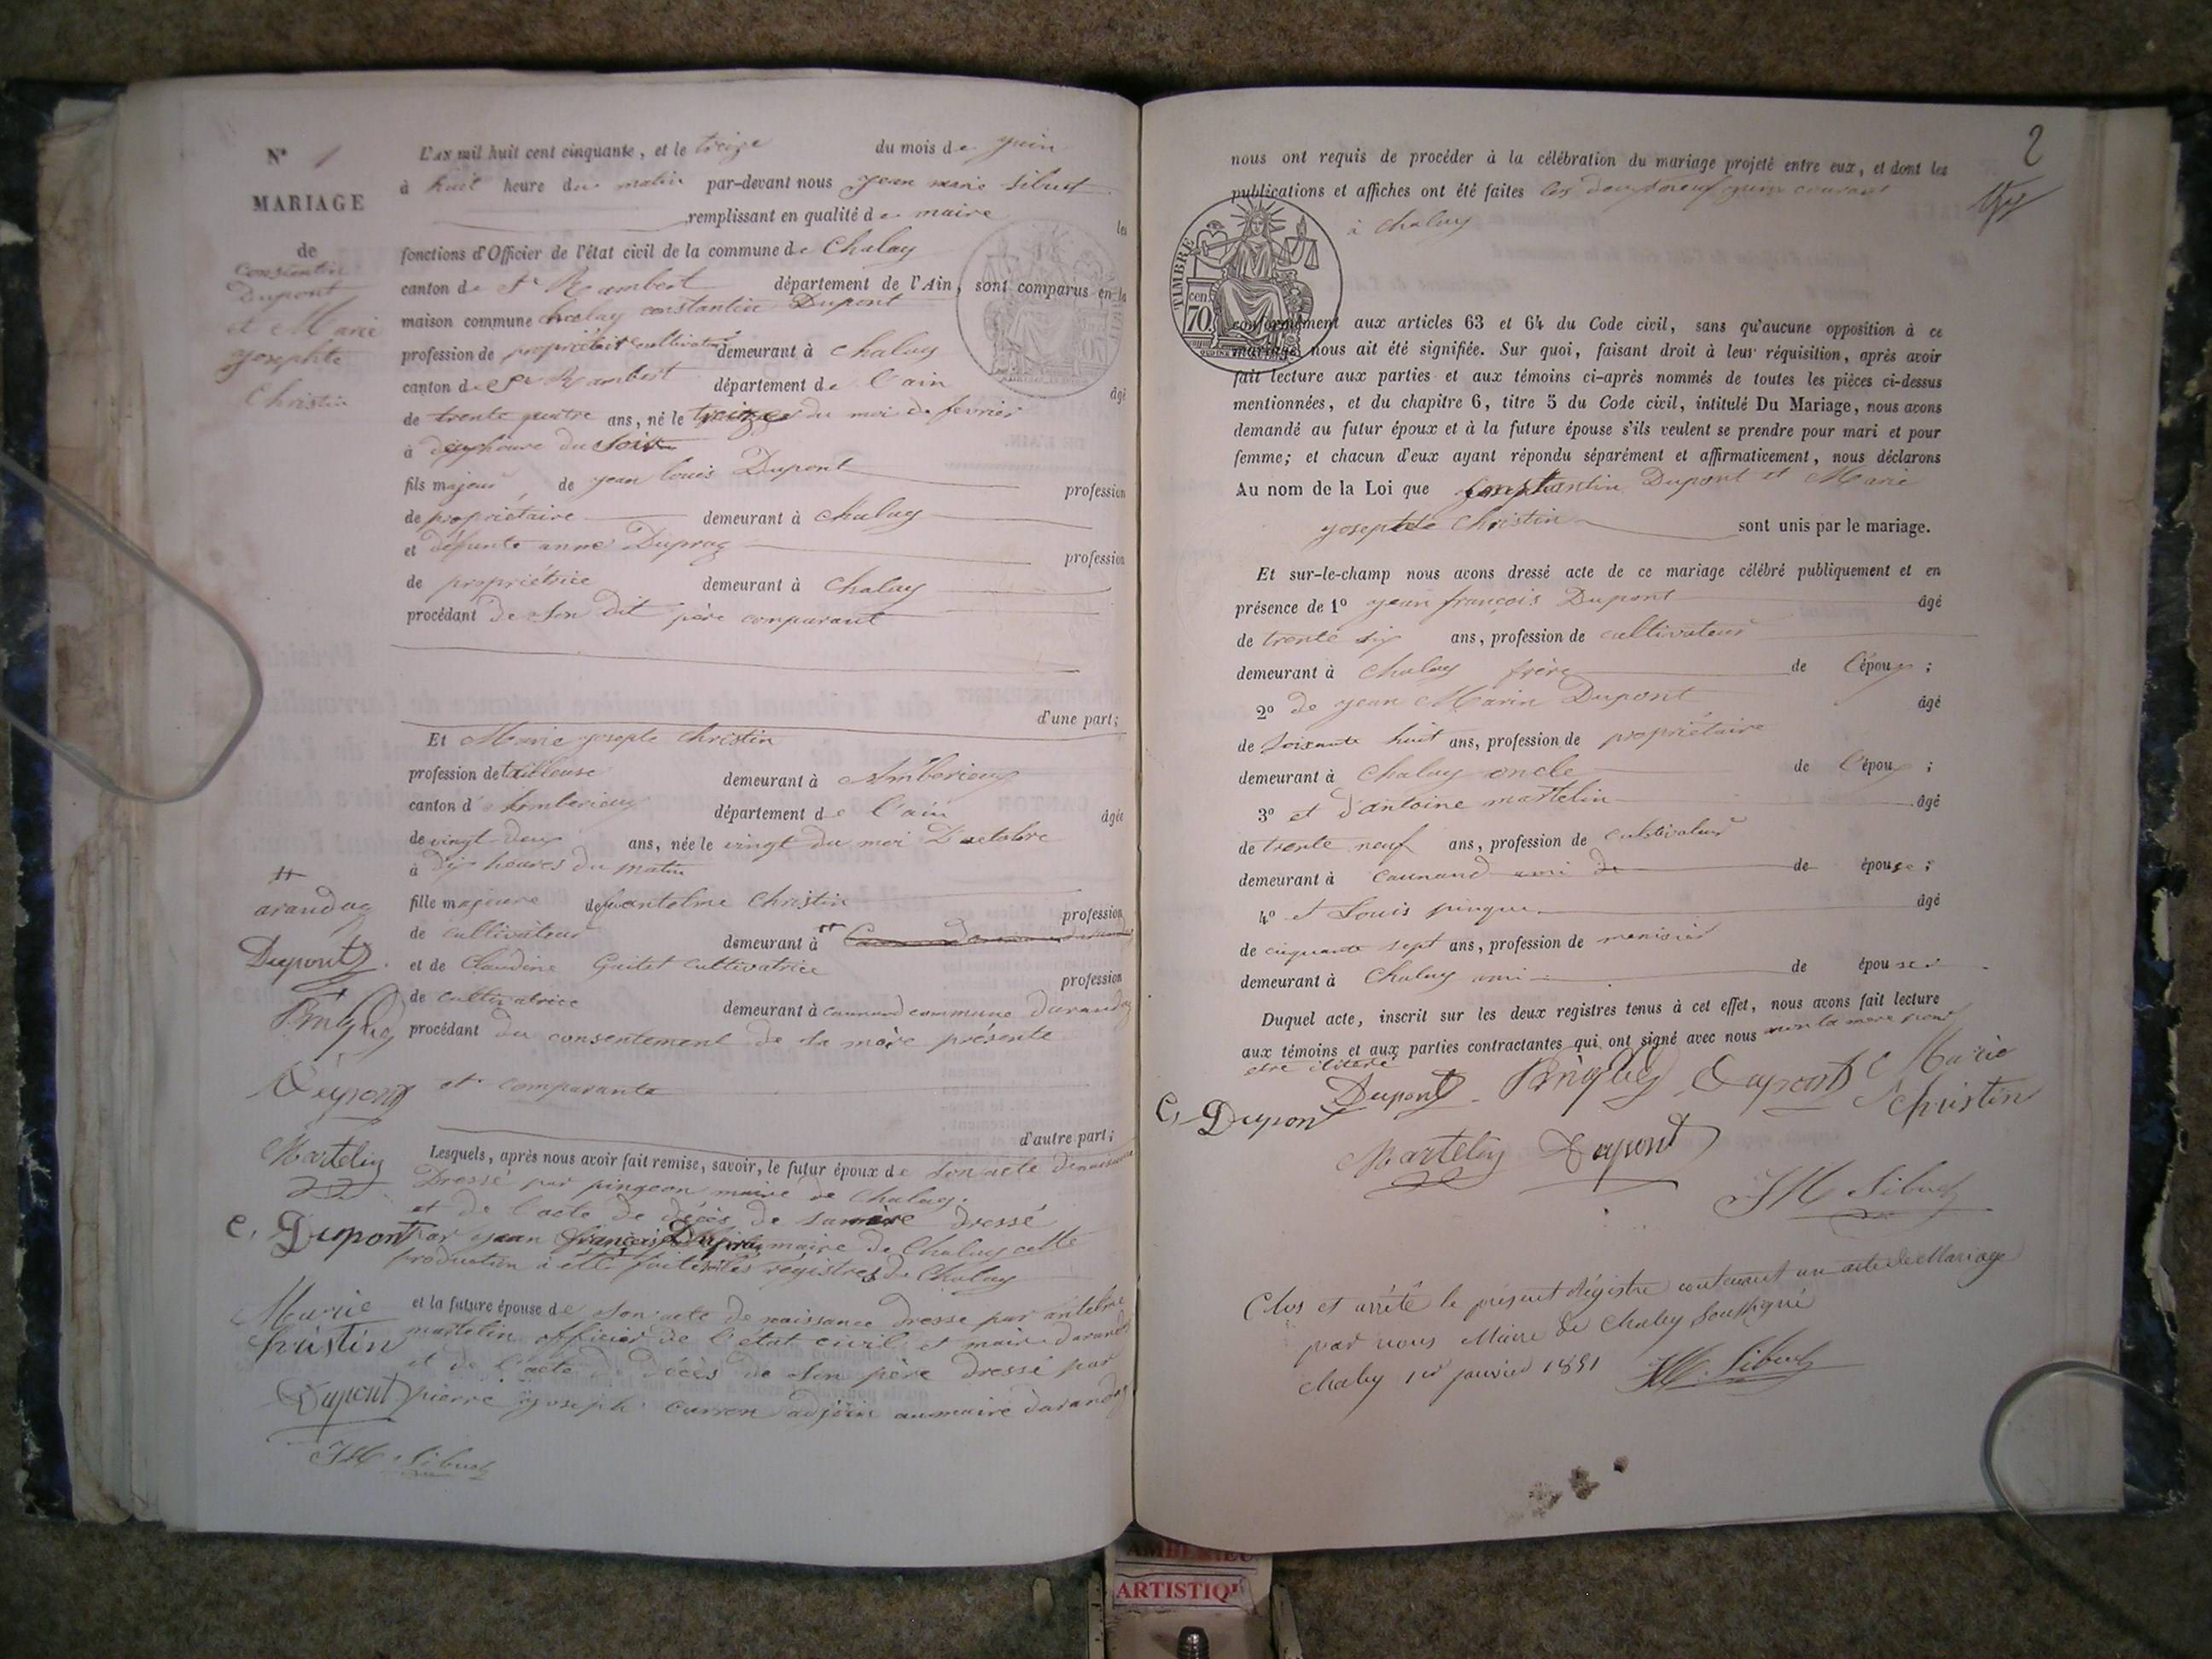 N° 1
MARIAGE
de
Constantin
Dupont
et Marie
josephte
Christin
L'AN mil huit cent cinquante, et le treize du mois de juin
à huit heure du matin par-devant nous jean marie Sibuet
remplissant en qualité de maire les
fonctions d'Officier de l'état civil de la commune de Chaley
canton de St Rambert département de l'Ain, sont comparus en la
maison commune constantin Dupont
profession de propriétaire cultivateur demeurant à chaley
canton de St Rambert département de l'ain âgé
de trente quatre ans, né le treize du moi de fevrier
à heure du soir
fils majeur de jean louis Dupont profession
de propriétaire demeurant à chaley
et défunte anne Dupraz profession
de propriétrice demeurant à Chaley
procédant de Son dit père comparant
d'une part;
Et Marie josepte Christin
profession de tailleuse demeurant à Amberieux
canton d'Amberieux département de l'ain âgée
de vingt deux ans, née le vingt du moi D'octobre
à dix heures du matin
fille majeure defeu antelme Christin profession
de cultivateur demeurant à
et de Claudine Guitet cultivatrice profession
de cultivatrice demeurant à caunand commune darandas
procédant du consentement de sa mère présente
et comparante
d'autre part;
Lesquels, après nous avoir fait remise, savoir, le futur époux de Son acte denaissance
Dressé par pingeon maire de Chaley.
et de l'acte de décès de samère dressé
par jean françois maire de Chaley cette
production à été faite les régistres de Chaley
et la future épouse de Son acte de naissance dresse par antelme
martelin officier de l'etat civil et maire darandas
et de l'acte de décès de Son père dressé par
pierre joseph carron adjoin aumaire darandas
arandas
Dupont
Dupont
Martelin
C. Dupont
Marie
Christin
Dupont
JM Sibuet
2
nous ont requis de procéder à la célébration du mariage projeté entre eux, et dont les
publications et affiches ont été faites les deux & neuf juin courant
à chaley
TIMBRE
70 cen.
conformément aux articles 63 et 64 du Code civil, sans qu'aucune opposition à ce
mariage nous ait été signifiée. Sur quoi, faisant droit à leur réquisition, après avoir
fait lecture aux parties et aux témoins ci-après nommés de toutes les pièces ci-dessus
mentionnées, et du chapitre 6, titre 5 du Code civil, intitulé Du Mariage, nous avons
demandé au futur époux et à la future épouse s'ils veulent se prendre pour mari et pour
femme; et chacun d'eux ayant répondu séparément et affirmativement, nous déclarons
Au nom de la Loi que Constantin Dupont et Marie
josephte Christin sont unis par le mariage.
Et sur-le-champ nous avons dressé acte de ce mariage célébré publiquement et en
présence de 1° jean françois Dupont âgé
de trente six ans, profession de cultivateur
demeurant à Chaley frère de l'époux;
2° de jean Marin Dupont âgé
de soixante huit ans, profession de propriétaire
demeurant à Chaley oncle de l'époux;
3° et d'antoine martelin âgé
de trente neuf ans, profession de cultivateur
demeurant à caunand ami de de épouse;
4° et Louis âgé
de cinquante sept ans, profession de menisier
demeurant à Chaley ami de épouser
Duquel acte, inscrit sur les deux registres tenus à cet effet, nous avons fait lecture
aux témoins et aux parties contractantes qui ont signé avec nous non la mere pour
etre ilitere
Dupont Dupont Marie
Christin
C. Dupont
Martelin Dupont
JM Sibuet
Clos et arrêté le présent Régistre contenant un acte de Mariage
par nous Maire de Chaley Soussigné
Chaley 1er janvier 1851 JM. Sibuet
ARTISTIQ